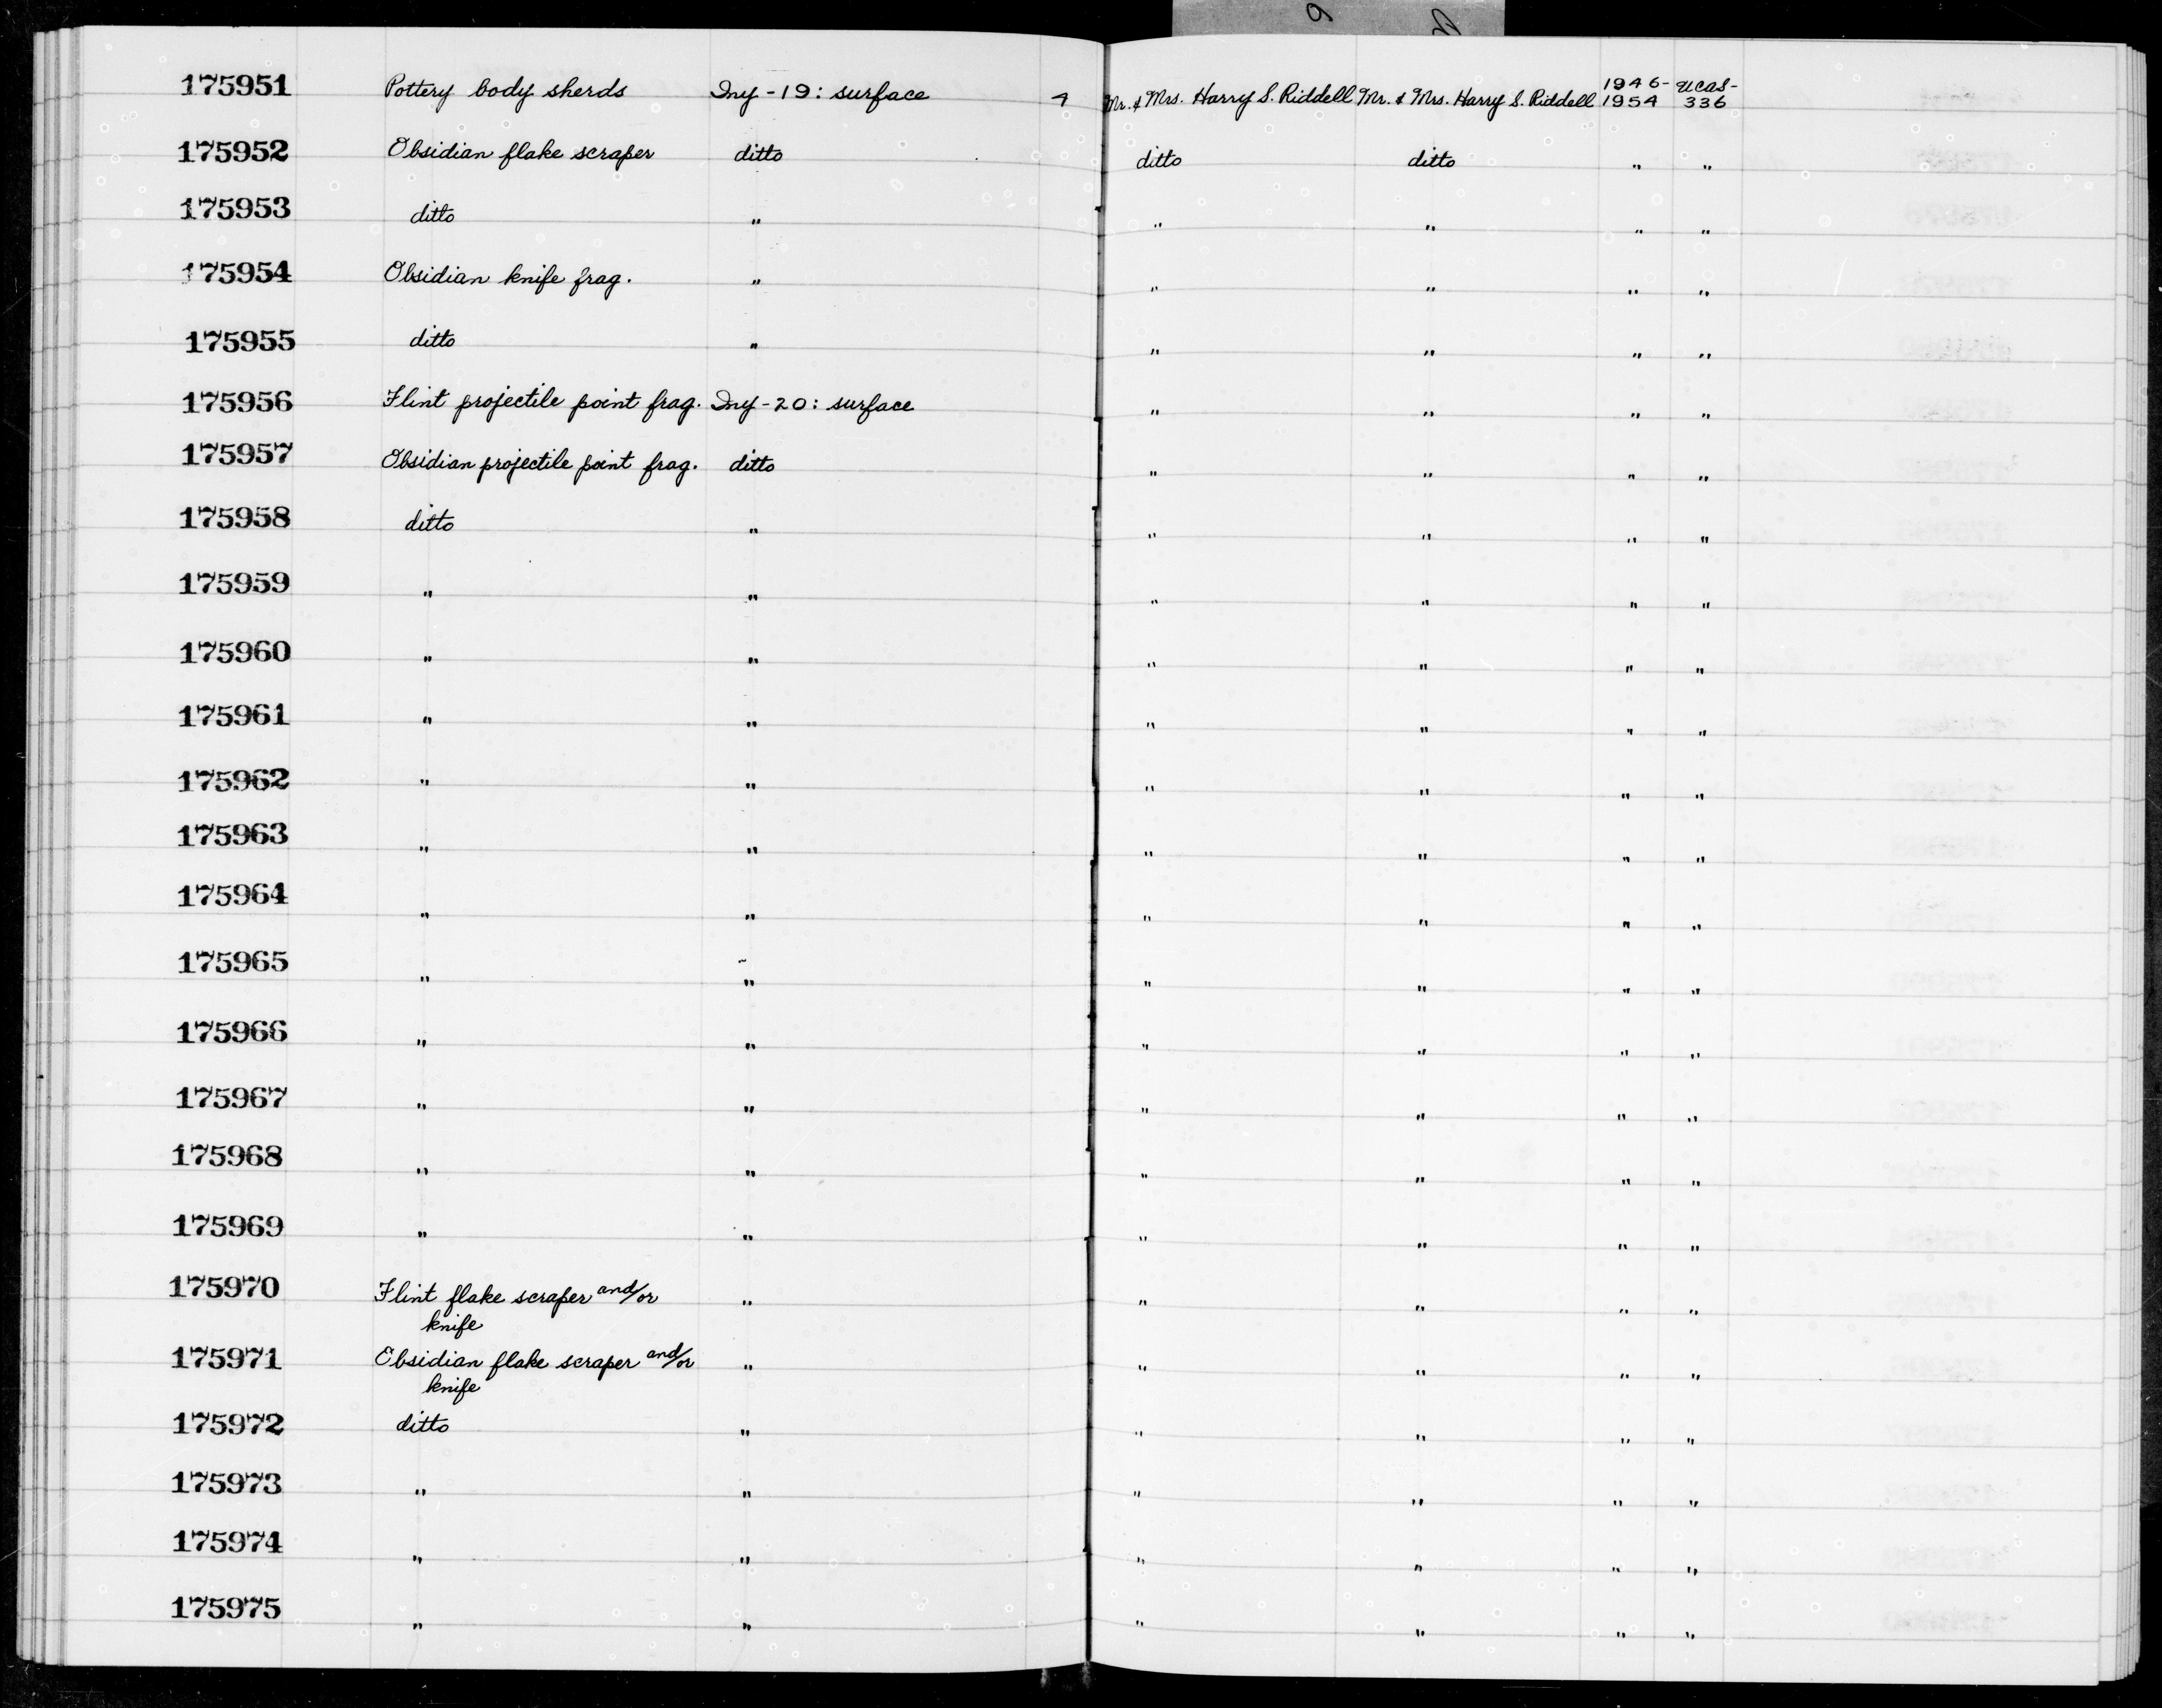 175951 Pottery body sherds Iny-19: surface 4 Mr. & Mrs. Harry S. Riddell Mr. & Mrs. Harry S. Riddell 1946-1954 UCAS-336
175952 Obsidian flake scraper ditto ditto ditto " "
175953 ditto " " " " "
175954 Obsidian knife frag. " " " " "
175955 ditto " " " " "
175956 Flint projectile point frag. Iny-20: surface " " " "
175957 Obsidian projectile point frag. ditto " " " "
175958 ditto " " " " "
175959 " " " " " "
175960 " " " " " "
175961 " " " " " "
175962 " " " " " "
175963 " " " " " "
175964 " " " " " "
175965 " " " " " "
175966 " " " " " "
175967 " " " " " "
175968 " " " " " "
175969 " " " " " "
175970 Flint flake scraper and/or " " " " "
knife
175971 Obsidian flake scraper and/or " " " " "
knife
175972 ditto " " " " "
175973 " " " " " "
175974 " " " " " "
175975 " " " " " "